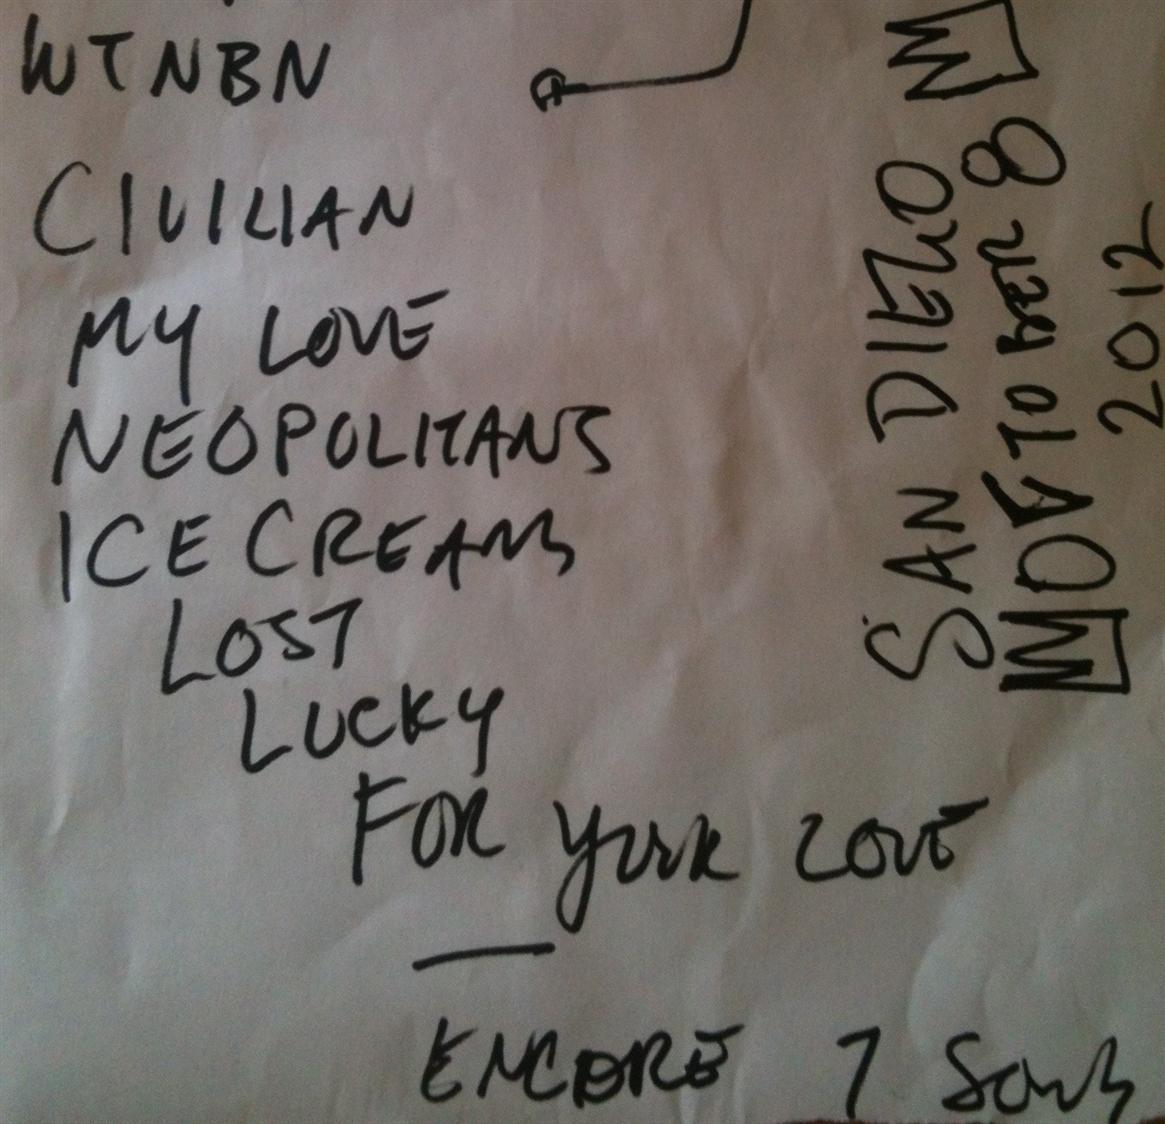 WTNBN
CIVILIAN
MY LOVE
NEOPOLITANS
ICE CREAMS
LOST
LUCKY
FOR YOUR LOVE
ENCORE 7 SONGS
SAN DIEGO
OCTOBER 8
2012